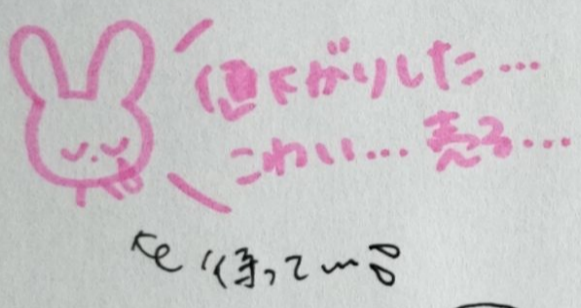 値下がりした…
こわい…売る…
待って〰